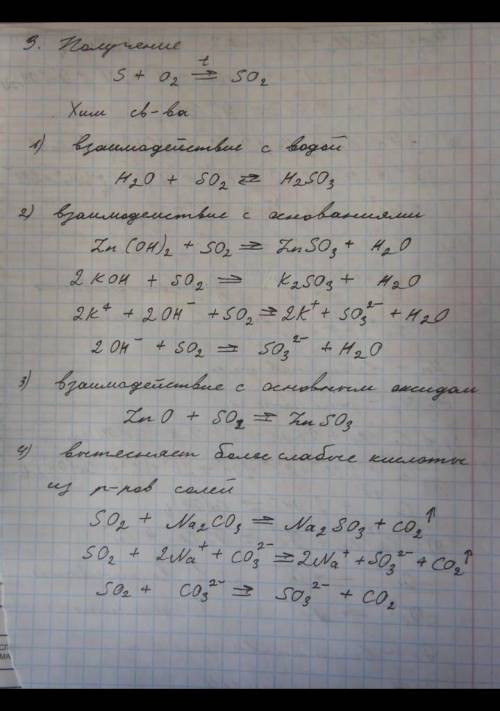 3. Получение
S + O₂ =ᵗ SO₂
Хим св-ва
1) взаимодействие с водой
H₂O + SO₂ ⇄ H₂SO₃
2) взаимодействие с основаниями
Zn(OH)₂ + SO₂ ⇒ ZnSO₃ + H₂O
2KOH + SO₂ ⇒ K₂SO₃ + H₂O
2K⁺ + 2OH⁻ + SO₂ ⇒ 2K⁺ + SO₃²⁻ + H₂O
2OH⁻ + SO₂ ⇒ SO₃²⁻ + H₂O
3) взаимодействие с основным оксидом
ZnO + SO₂ ⇒ ZnSO₃
4) вытесняет более слабые кислоты
из р-ров солей
SO₂ + Na₂CO₃ ⇒ Na₂SO₃ + CO₂↑
SO₂ + 2Na⁺ + CO₃²⁻ ⇒ 2Na⁺ + SO₃²⁻ + CO₂↑
SO₂ + CO₃²⁻ ⇒ SO₃²⁻ + CO₂